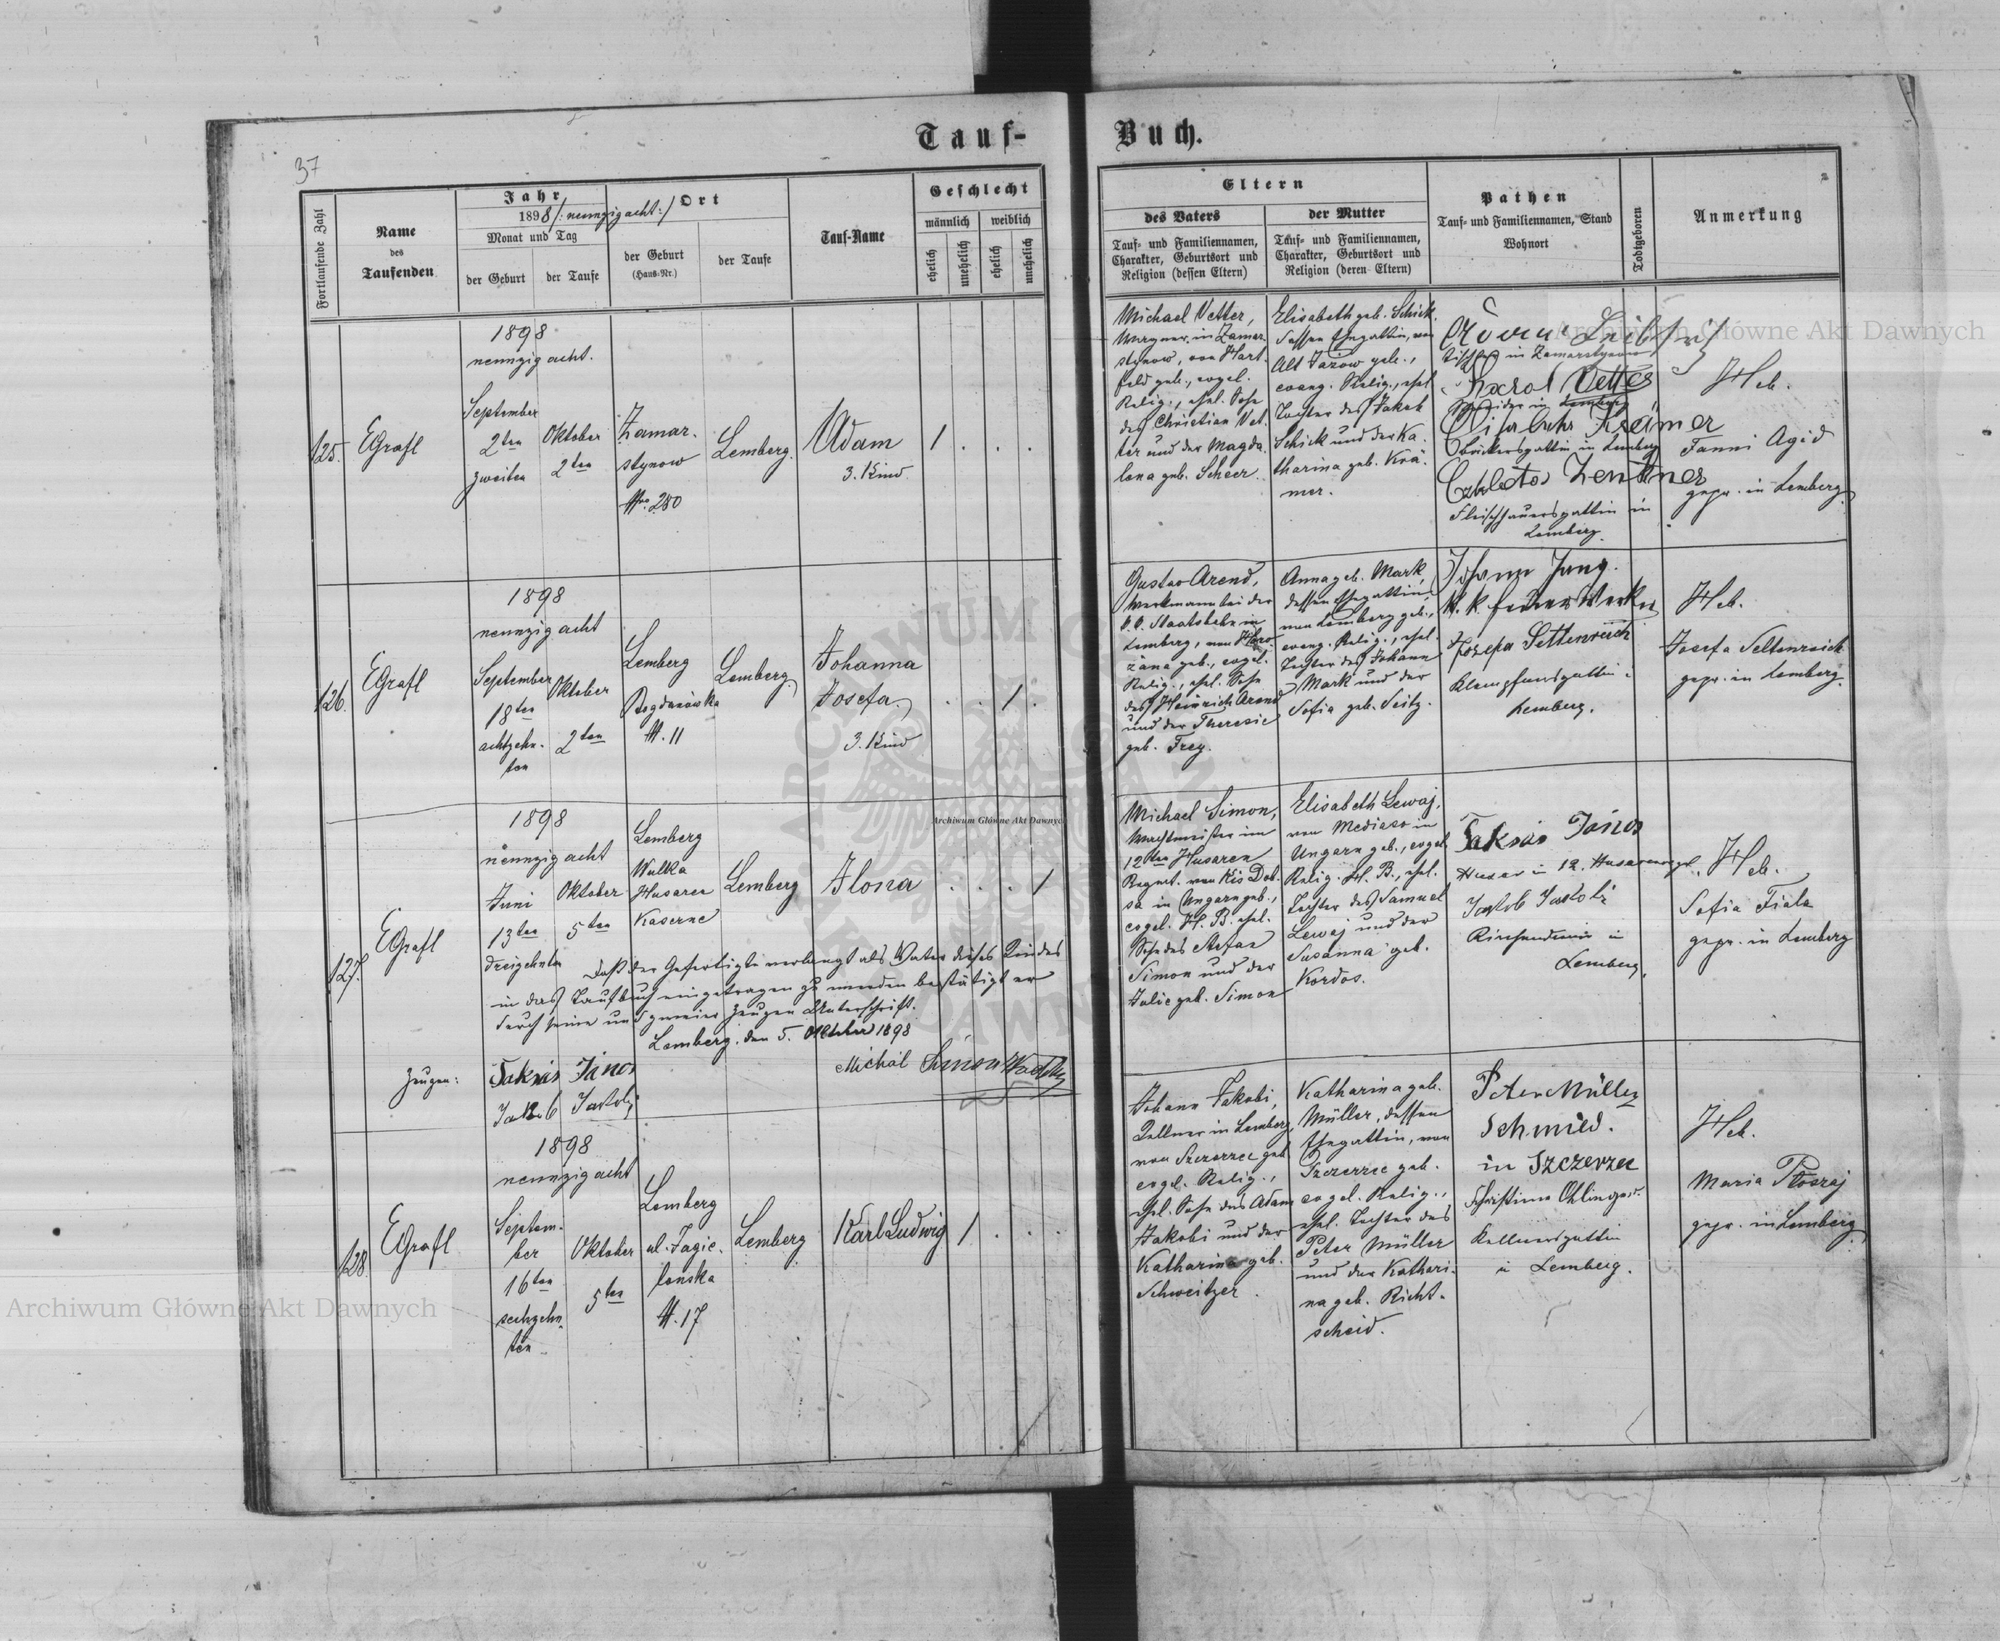 Tauf-
Buch.
37
Fortlaufende Zahl
Name
des
Taufenden
Jahr
1898/: neunzig acht :/
Monat und Tag
der Geburt
der Taufe
Ort
der Geburt
(Haus-Nr.)
der Taufe
Tauf-Name
Geschlecht
männlich
weiblich
ehelich
unehelich
ehelich
unehelich
Eltern
des Vaters
Tauf- und Familiennamen,
Charakter, Geburtsort und
Religion (dessen Eltern)
der Mutter
Tauf- und Familiennamen,
Charakter, Geburtsort und
Religion (deren Eltern)
Pathen
Tauf- und Familiennamen, Stand
Wohnort
Todtgeboren
Anmerkung
125.
EGrafl
1898
neunzig acht.
September
2ten
zweiten
Oktober
2ten
Zamar-
stynow
Nro. 280
Lemberg.
Adam
3. Kind
1 . . .
Michael Vetter,
in Zamar-
stynow, von Hart-
feld geb., evgel.
Relig., ehel. Sohn
des Christian Vet-
ter und der Magda-
lena geb. Scheer.
Elisabeth geb. Schick,
dessen Ehegattin, von
Alt Jazow geb.,
evang. Relig., ehel.
Tochter des Jakob
Schick und der Ka-
tharina geb. Krä-
mer.
in Zamarstynow
Karol Vetter
in Lemberg
Krämer
in Lemberg
Zentner
Fleischhauersgattin in
Lemberg.
Heb.
Fanni Agid
gepr. in Lemberg
126.
EGrafl
1898
neunzig acht
September
18ten
achtzehn-
ten
Oktober
2ten
Lemberg
Bogdanówka
N. 11
Lemberg
Johanna
Josefa.
3. Kind
. . 1 .
Gustav Arend,
Werkmann bei der
k.k. Staatsbahn in
Lemberg, von
geb., evgel.
Relig., ehel. Sohn
des Heinrich Arend
und der Theresie
geb. Frey.
Anna geb. Mark,
dessen Ehegattin,
von Lemberg geb.,
evang. Relig., ehel.
Tochter des Johann
Mark und der
Sofia geb. Seitz.
Johann Jung.
Josefa Seltenreich
Klempfnersgattin in
Lemberg.
Heb.
Josefa Seltenreich
gepr. in Lemberg.
127.
EGrafl
1898
neunzig acht
Juni
13ten
dreizehnten
Oktober
5ten
Lemberg
Wulka
Husaren
Kaserne
Lemberg
Ilona
. . . 1
Michael Simon,
Wachtmeister im
12ten Husaren
Regmt. von Kis Deb-
sa in Ungarn geb.,
evgel. H. B. ehel.
Sohn des Stefan
Simon und der
Julie geb. Simon
Elisabeth Lewaj,
von Mediaso in
Ungarn geb., evgel.
Relig. H. B., ehel.
Tochter des Samuel
Lewaj und der
Susanna geb.
Kordos.
Taksás János
Husar in 12. Husarenregt.
Jakob Jakobi
Kirchendiener in
Lemberg.
Heb.
Sofia Fiala
gepr. in Lemberg
Daß der Gefertigte verlangt als Vater dieses Kindes
in das Taufbuch eingetragen zu werden bestätigt er
durch seine und zweier Zeugen Unterschrift.
Lemberg, den 5. Oktober 1898
Zeugen:
Taksás János
Jakob Jakobi
Michál Simon
128.
EGrafl
1898
neunzig acht
Septem-
ber
16ten
sechzehn-
ten
Oktober
5ten
Lemberg
ul. Jagie-
lonska
N. 17
Lemberg
Karl Ludwig
1 . . .
Johann Jakobi,
Kellner in Lemberg,
von Szczerzec geb.
evgel. Relig.,
ehel. Sohn des Adam
Jakobi und der
Katharina geb.
Schweitzer.
Katharina geb.
Müller, dessen
Ehegattin, von
Szczerzec geb.
evgel. Relig.,
ehel. Tochter des
Peter Müller
und der Kathari-
na geb. Richt-
scheid.
Peter Müller
Schmied.
in Szczerzec
Christina
Kellnersgattin
in Lemberg.
Heb.
Maria
gepr. in Lemberg.
Archiwum Główne Akt Dawnych
Archiwum Główne Akt Dawnych
Archiwum Główne Akt Dawnych